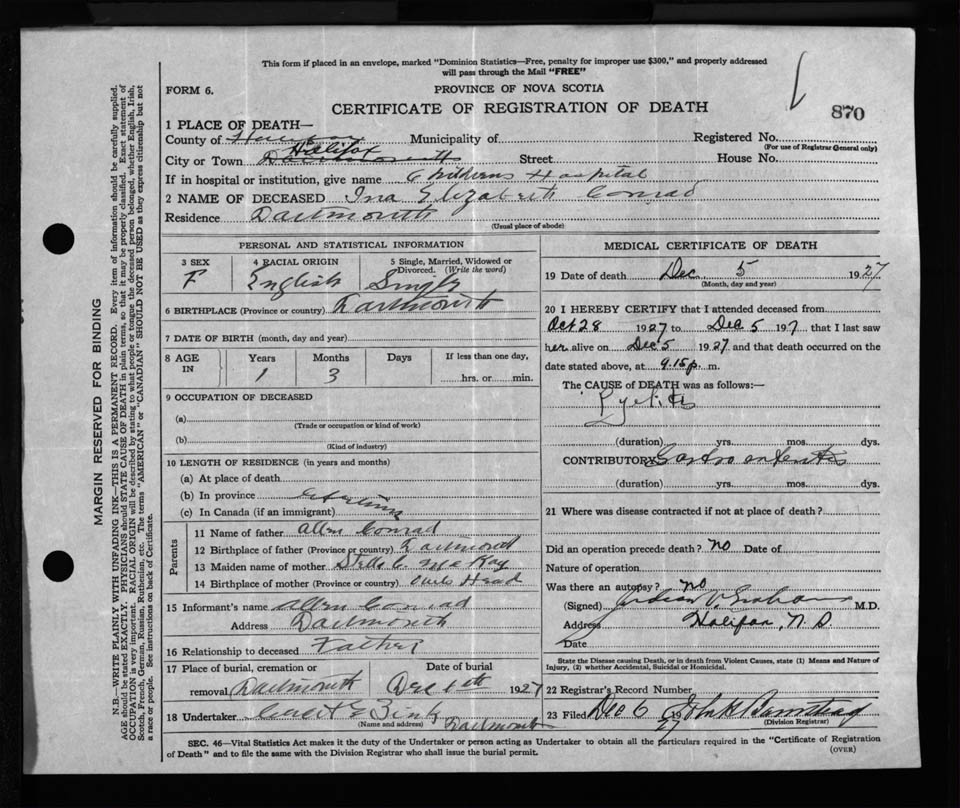 This form if placed in an envelope, marked "Dominion Statistics—Free, penalty for improper use $300," and properly addressed
will pass through the Mail "FREE"
FORM 6.
PROVINCE OF NOVA SCOTIA
870
CERTIFICATE OF REGISTRATION OF DEATH
1 PLACE OF DEATH—
County of Municipality of Registered No.
(For use of Registrar General only)
Halifax
City or Town Dartmouth Street House No.
If in hospital or institution, give name Childrens Hospital
2 NAME OF DECEASED Ina Elizabeth Conrad
Residence Dartmouth
(Usual place of abode)
MARGIN RESERVED FOR BINDING
N.B.—WRITE PLAINLY WITH UNFADING INK—THIS IS A PERMANENT RECORD. Every item of information should be carefully supplied.
AGE should be stated EXACTLY. PHYSICIANS should STATE CAUSE OF DEATH in plain terms, so that it may be properly classified. Exact statement of
OCCUPATION is very important. RACIAL ORIGIN will be described by stating to what people or tongue the deceased person belonged, whether English, Irish,
Scotch, French, German, Russian, Ruthenian, etc. The terms "AMERICAN" or "CANADIAN" SHOULD NOT BE USED as they express citizenship but not
a race or people. See instructions on back of Certificate.
PERSONAL AND STATISTICAL INFORMATION
3 SEX 4 RACIAL ORIGIN 5 Single, Married, Widowed or
Divorced. (Write the word)
F English Single
6 BIRTHPLACE (Province or country) Dartmouth
7 DATE OF BIRTH (month, day and year)
8 AGE IN Years Months Days If less than one day,
1 3 hrs. or min.
9 OCCUPATION OF DECEASED
(a)
(Trade or occupation or kind of work)
(b)
(Kind of industry)
10 LENGTH OF RESIDENCE (in years and months)
(a) At place of death
(b) In province
(c) In Canada (if an immigrant)
Parents
11 Name of father Allen Conrad
12 Birthplace of father (Province or country) Dartmouth
13 Maiden name of mother Stella C. McKay
14 Birthplace of mother (Province or country) Owls Head
15 Informant's name Allen Conrad
Address Dartmouth
16 Relationship to deceased Father
17 Place of burial, cremation or Date of burial
removal Dartmouth Dec 6th 1927
18 Undertaker Zink Dartmouth
(Name and address)
MEDICAL CERTIFICATE OF DEATH
19 Date of death Dec. 5 1927
(Month, day and year)
20 I HEREBY CERTIFY that I attended deceased from
Oct 28 1927 to Dec 5 1927 that I last saw
her alive on Dec 5 1927 and that death occurred on the
date stated above, at 9.15 p. m.
The CAUSE of DEATH was as follows:—
Pyelitis
(duration) yrs. mos. dys.
CONTRIBUTORY Gastro enteritis
(duration) yrs. mos. dys.
21 Where was disease contracted if not at place of death?
Did an operation precede death? no Date of
Nature of operation
Was there an autopsy? no
(Signed) Graham M.D.
Address Halifax, N.S.
Date
State the Disease causing Death, or in death from Violent Causes, state (1) Means and Nature of
Injury, (2) whether Accidental, Suicidal or Homicidal.
22 Registrar's Record Number
23 Filed Dec 6 1927
(Division Registrar)
SEC. 46—Vital Statistics Act makes it the duty of the Undertaker or person acting as Undertaker to obtain all the particulars required in the "Certificate of Registration
of Death" and to file the same with the Division Registrar who shall issue the burial permit.
(OVER)